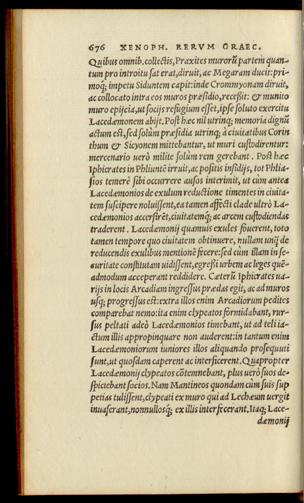 676 XENOPH. RERVM GRAEC.
Quibus omnib. collectis, Praxites murorũ partem quan-
tum pro introitu sat erat, diruit, ac Megaram ducit: pri-
moq́; impetu Siduntem capit: inde Crommyonam diruit,
ac collocato intra eos muros præsidio, recessit: & munito
muro epijcia, ut socijs refugium esset, ipse soluto exercitu
Lacedæmonem abijt. Post hæc nil utrinq; memoria dignũ
actum est, sed solùm præsidia utrinq; à ciuitatibus Corin
thum & Sicyonem mittebantur, ut muri custodirentur:
mercenario uerò milite solùm rem gerebant. Post hæc
Iphicrates in Phliuntẽ irruit, ac positis insidijs, tot Phlia-
sios temerè sibi occurrere ausos interimit, ut cùm antea
Lacedæmonios de exulum reductione timentes in ciuita-
tem suscipere noluissent, ea tamen affecti clade ultrò La-
cedæmonios accersirẽt, ciuitatemq́; ac arcem custodiendas
traderent. Lacedæmonij quamuis exules fouerent, toto
tamen tempore quo ciuitatem obtinuere, nullam unq̃ de
reducendis exulibus mentionẽ fecere: sed cùm illam in se-
curitate constitutam uidissent, egressi urbem ac leges quẽ-
admodum acceperant reddidere. Cæterũ Iphicrates ua-
rijs in locis Arcadiam ingressus prædas egit, ac ad muros
usq; progressus est: extra illos enim Arcadiorum pedites
comparebat nemo: ita enim clypeatos formidabant, rur-
sus peltati adeò Lacedæmonios timebant, ut ad teli ia-
ctum illis appropinquare non auderent: in tantum enim
Lacedæmoniorum iuniores illos aliquando prosequuti
sunt, ut quosdam caperent ac interficerent. Quapropter
Lacedæmonij clypeatos cõtemnebant, plus uerò suos de-
spiciebant socios. Nam Mantineos quondam cùm suis sup
petias tulissent, clypeati ex muro qui ad Lechæum uergit
inuaserant, nonnullosq́; ex illis interfecerant, Itaq; Lace-
dæmonij